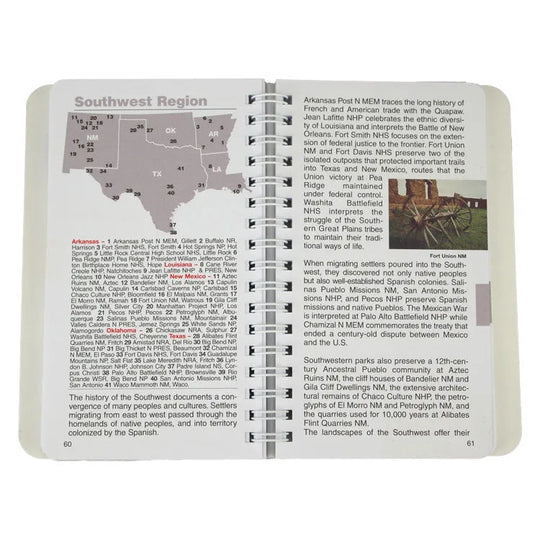 Southwest Region
NM
OK
AR
TX
LA
Arkansas – 1 Arkansas Post N MEM, Gillett 2 Buffalo NR,
Harrison 3 Fort Smith NHS, Fort Smith 4 Hot Springs NP, Hot
Springs 5 Little Rock Central High School NHS, Little Rock 6
Pea Ridge NMP, Pea Ridge 7 President William Jefferson Clin-
ton Birthplace Home NHS, Hope Louisiana – 8 Cane River
Creole NHP, Natchitoches 9 Jean Lafitte NHP & PRES, New
Orleans 10 New Orleans Jazz NHP New Mexico – 11 Aztec
Ruins NM, Aztec 12 Bandelier NM, Los Alamos 13 Capulin
Volcano NM, Capulin 14 Carlsbad Caverns NP, Carlsbad 15
Chaco Culture NHP, Bloomfield 16 El Malpais NM, Grants 17
El Morro NM, Ramah 18 Fort Union NM, Watrous 19 Gila Cliff
Dwellings NM, Silver City 20 Manhattan Project NHP, Los
Alamos 21 Pecos NHP, Pecos 22 Petroglyph NM, Albu-
querque 23 Salinas Pueblo Missions NM, Mountainair 24
Valles Caldera N PRES, Jemez Springs 25 White Sands NP,
Alamogordo Oklahoma – 26 Chickasaw NRA, Sulphur 27
Washita Battlefield NHS, Cheyenne Texas – 28 Alibates Flint
Quarries NM, Fritch 29 Amistad NRA, Del Rio 30 Big Bend NP,
Big Bend NP 31 Big Thicket N PRES, Beaumont 32 Chamizal
N MEM, El Paso 33 Fort Davis NHS, Fort Davis 34 Guadalupe
Mountains NP, Salt Flat 35 Lake Meredith NRA, Fritch 36 Lyn-
don B. Johnson NHP, Johnson City 37 Padre Island NS, Cor-
pus Christi 38 Palo Alto Battlefield NHP, Brownsville 39 Rio
Grande WSR, Big Bend NP 40 San Antonio Missions NHP,
San Antonio 41 Waco Mammoth NM, Waco.
The history of the Southwest documents a con-
vergence of many peoples and cultures. Settlers
migrating from east to west passed through the
homelands of native peoples, and into territory
colonized by the Spanish.
60
Arkansas Post N MEM traces the long history of
French and American trade with the Quapaw.
Jean Lafitte NHP celebrates the ethnic diversity
of Louisiana and interprets the Battle of New
Orleans. Fort Smith NHS focuses on the exten-
sion of federal justice to the frontier. Fort Union
NM and Fort Davis NHS preserve two of the
isolated outposts that protected important trails
into Texas and New Mexico, routes that the
Union victory at Pea
Ridge maintained
under federal control.
Washita Battlefield
NHS interprets the
struggle of the South-
ern Great Plains tribes
to maintain their tradi-
tional ways of life.
Fort Union NM
When migrating settlers poured into the South-
west, they discovered not only native peoples
but also well-established Spanish colonies. Sali-
nas Pueblo Missions NM, San Antonio Mis-
sions NHP, and Pecos NHP preserve Spanish
missions and native Pueblos. The Mexican War
is interpreted at Palo Alto Battlefield NHP while
Chamizal N MEM commemorates the treaty that
ended a century-old dispute between Mexico
and the U.S.
Southwestern parks also preserve a 12th-cen-
tury Ancestral Pueblo community at Aztec
Ruins NM, the cliff houses of Bandelier NM and
Gila Cliff Dwellings NM, the extensive architec-
tural remains of Chaco Culture NHP, the petro-
glyphs of El Morro NM and Petroglyph NM, and
the quarries used for 10,000 years at Alibates
Flint Quarries NM.
The landscapes of the Southwest offer their
61